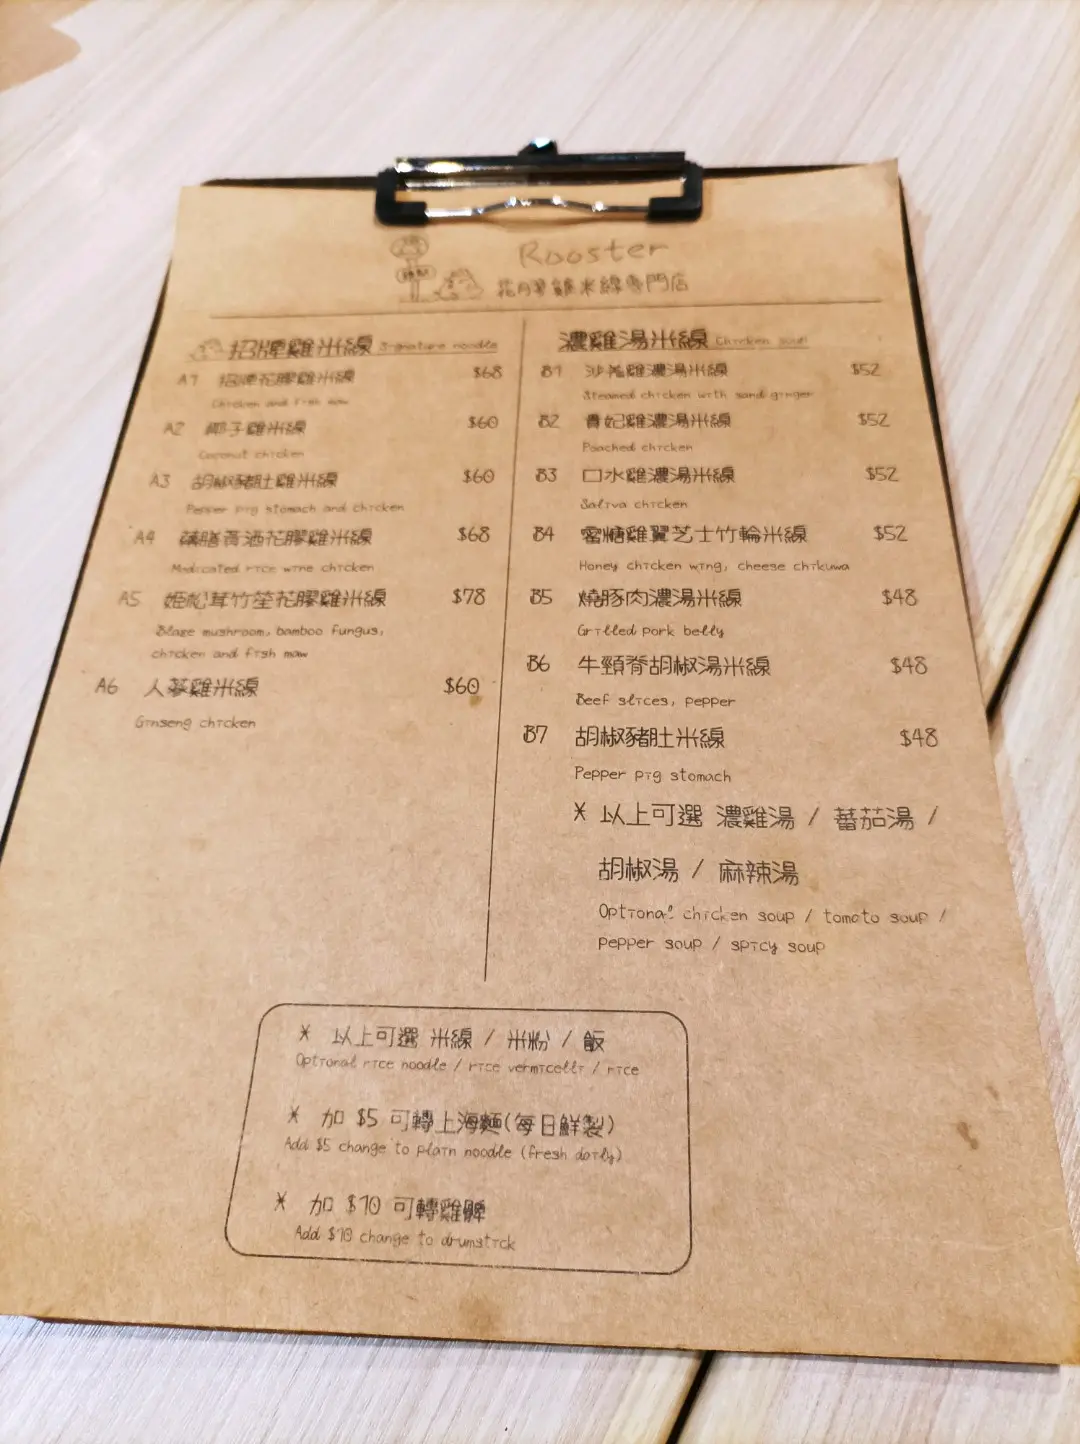 Rooster
花膠雞米線專門店
招牌雞米線 Signature noodle
A1 招牌花膠雞米線 $68
Chicken and fish maw
A2 椰子雞米線 $60
Coconut chicken
A3 胡椒豬肚雞米線 $60
Pepper pig stomach and chicken
A4 藥膳黃酒花膠雞米線 $68
Medicated rice wine chicken
A5 姬松茸竹笙花膠雞米線 $78
Blaze mushroom, bamboo fungus,
chicken and fish maw
A6 人參雞米線 $60
Ginseng chicken
濃雞湯米線 Chicken soup
B1 沙薑雞濃湯米線 $52
Steamed chicken with sand ginger
B2 貴妃雞濃湯米線 $52
Poached chicken
B3 口水雞濃湯米線 $52
Saliva chicken
B4 蜜糖雞翼芝士竹輪米線 $52
Honey chicken wing, cheese chikuwa
B5 燒豚肉濃湯米線 $48
Grilled pork belly
B6 牛頸脊胡椒湯米線 $48
Beef slices, pepper
B7 胡椒豬肚米線 $48
Pepper pig stomach
* 以上可選 濃雞湯 / 蕃茄湯 /
胡椒湯 / 麻辣湯
Optional chicken soup / tomato soup /
pepper soup / spicy soup
* 以上可選 米線 / 米粉 / 飯
Optional rice noodle / rice vermicelli / rice
* 加 $5 可轉上海麵(每日鮮製)
Add $5 change to plain noodle (fresh daily)
* 加 $10 可轉雞髀
Add $10 change to drumstick